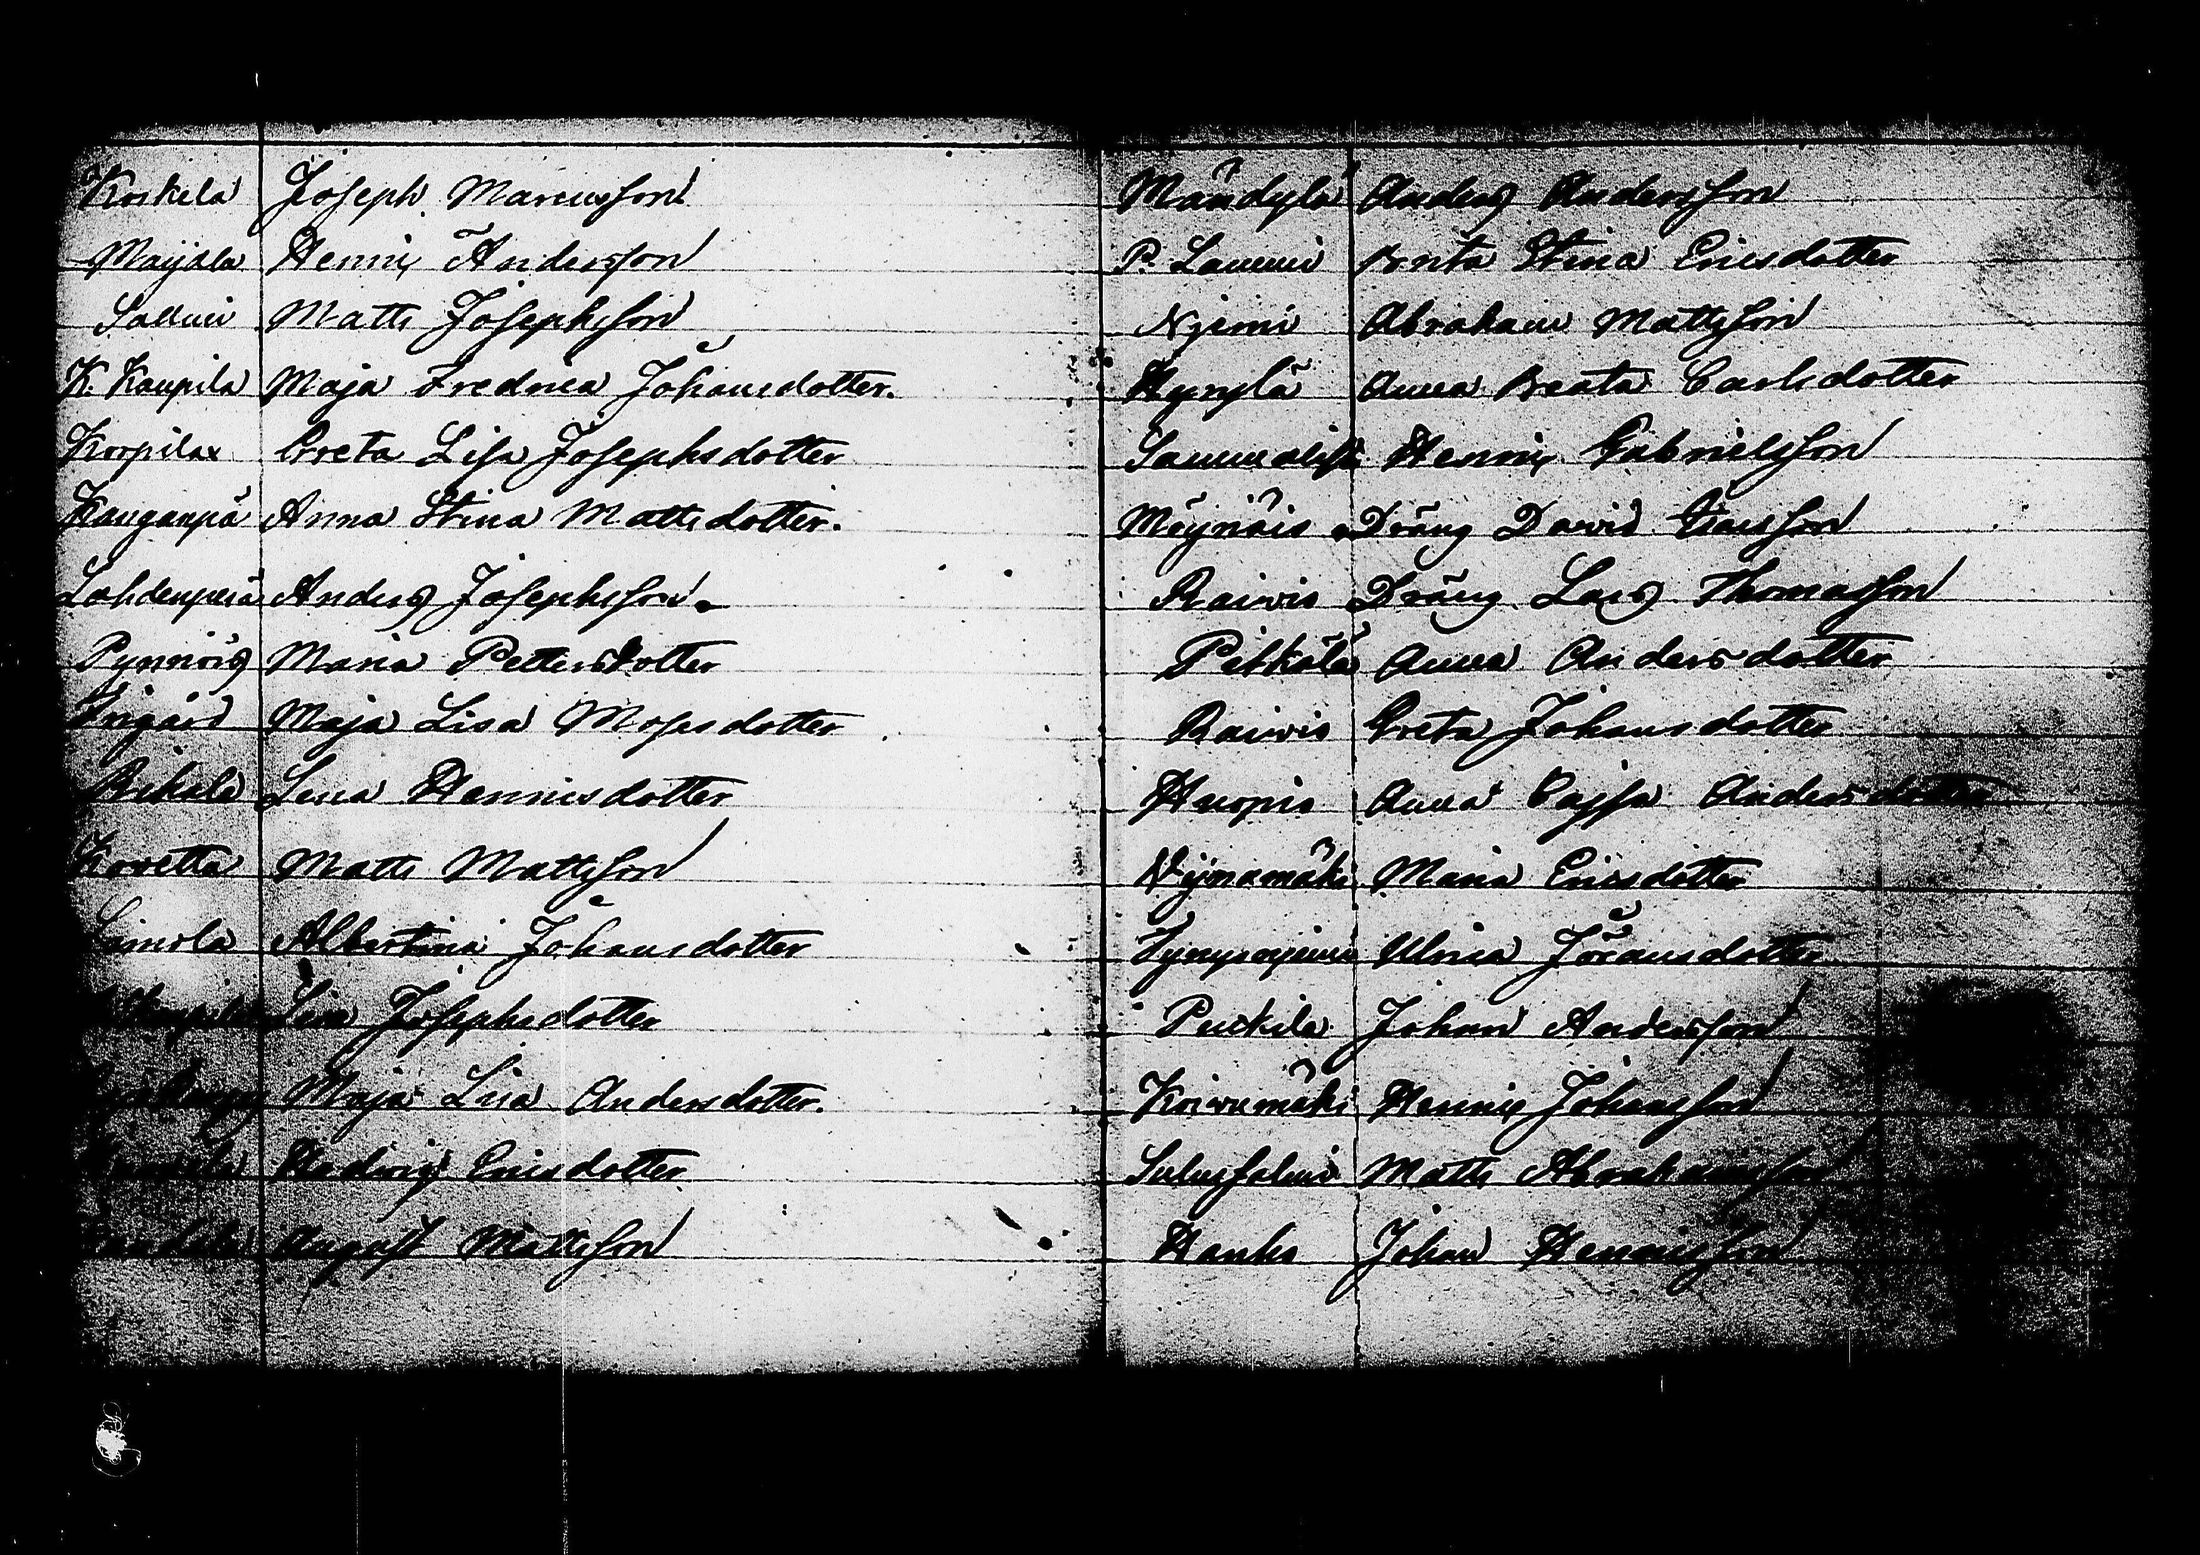 Koskela Joseph Marcusson
Maijala Henric Andersson
Salmi Matts Josephsson
K. Kaupila Maja Fredrica Johansdotter.
Korpilax Greta Lisa Josephsdotter
Kauganpä Anna Stina Mattsdotter.
Lahdenperä Anders Josephsson.
Pynnöis Maria Pettersdotter
Maja Lisa Mosesdotter
Lena Henricsdotter
Matts Mattsson
Laurola Albertina Johansdotter
Josephsdotter
Maja Lisa Andersdotter.
Hedvig Ericsdotter
August Mattsson
Mändylä Anders Andersson
P. Lammi Brita Stina Ericsdotter
Njemi Abraham Mattsson
Hyrylä Anna Beata Carlsdotter
Henric Gabrielsson
Möynäis Dräng David
Raivis Dräng Lars Thomasson
Pitkälä Anna Andersdotter
Raivis Greta Johansdotter
Huopis Anna Cajsa Andersdotter
Maria Ericsdotter
Ulrica Göransdotter
Puckila Johan Andersson
Koivumäki Henric Johansson
Matts Abrahamsson
Hanka Johan Henricsson